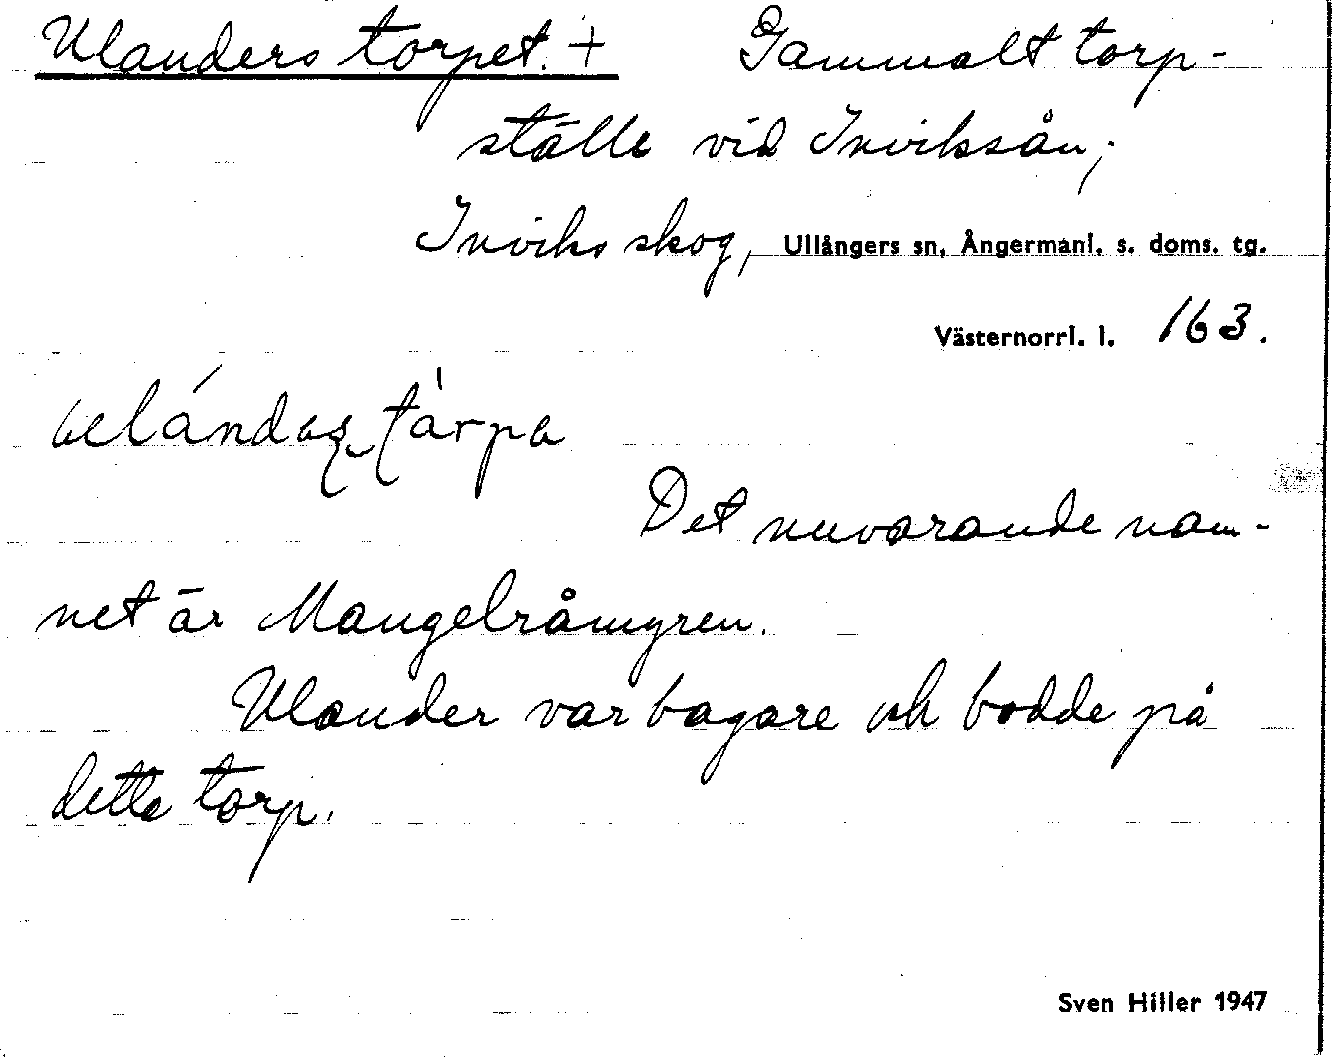 Ulanders torpet. + Gammalt torp-
ställe vid Inviksån;
Inviks skog, Ullångers sn, Ångermanl. s. doms. tg.
Västernorrl. l. 163.
Det nuvarande nam-
net är Mangelråmyren.
Ulander var bagare och bodde på
detta torp.
Sven Hiller 1947